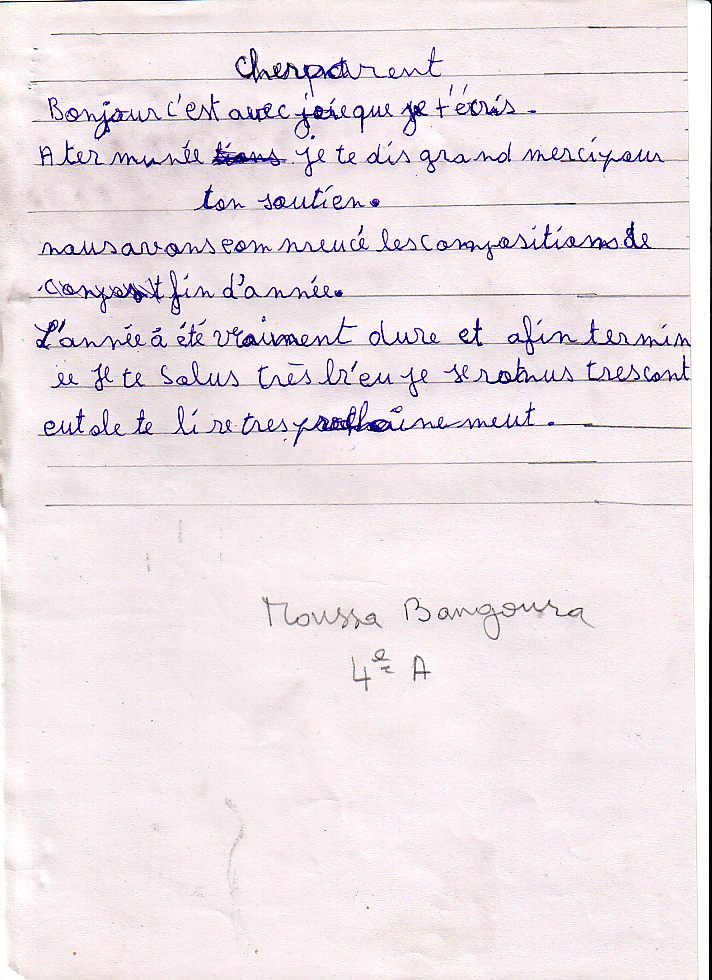 Cher parent
Bonjour c'est avec joie que je t'écris.
A ter munée je te dis grand merci pour
ton soutien.
nous avons com nreucé les compositions de
fin d'année.
L'année à été vraiment dure et afin termin
ée Je te Salus très bi'eu je tres cont
eut de te li re tres prochainement.
Moussa Bangoura
4e A